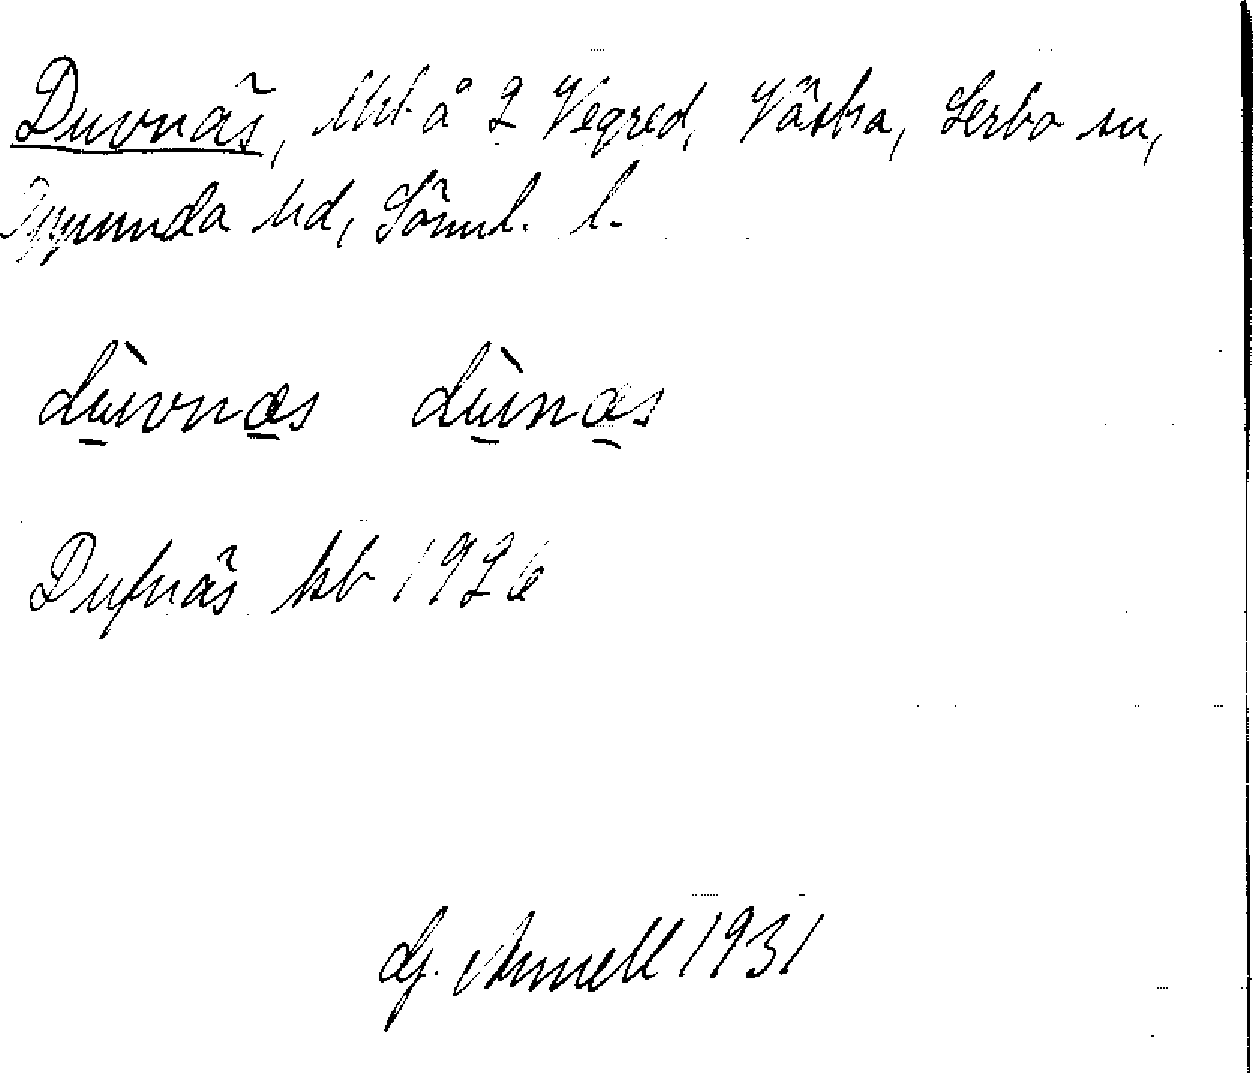 Duvnäs, lht å 2 Vegred, Västra, Lerbo sn,
Oppunda hd, Söml. l.
dùvnæs dùnæs
Dufnäs kb 1926
Lj. Arnell 1931